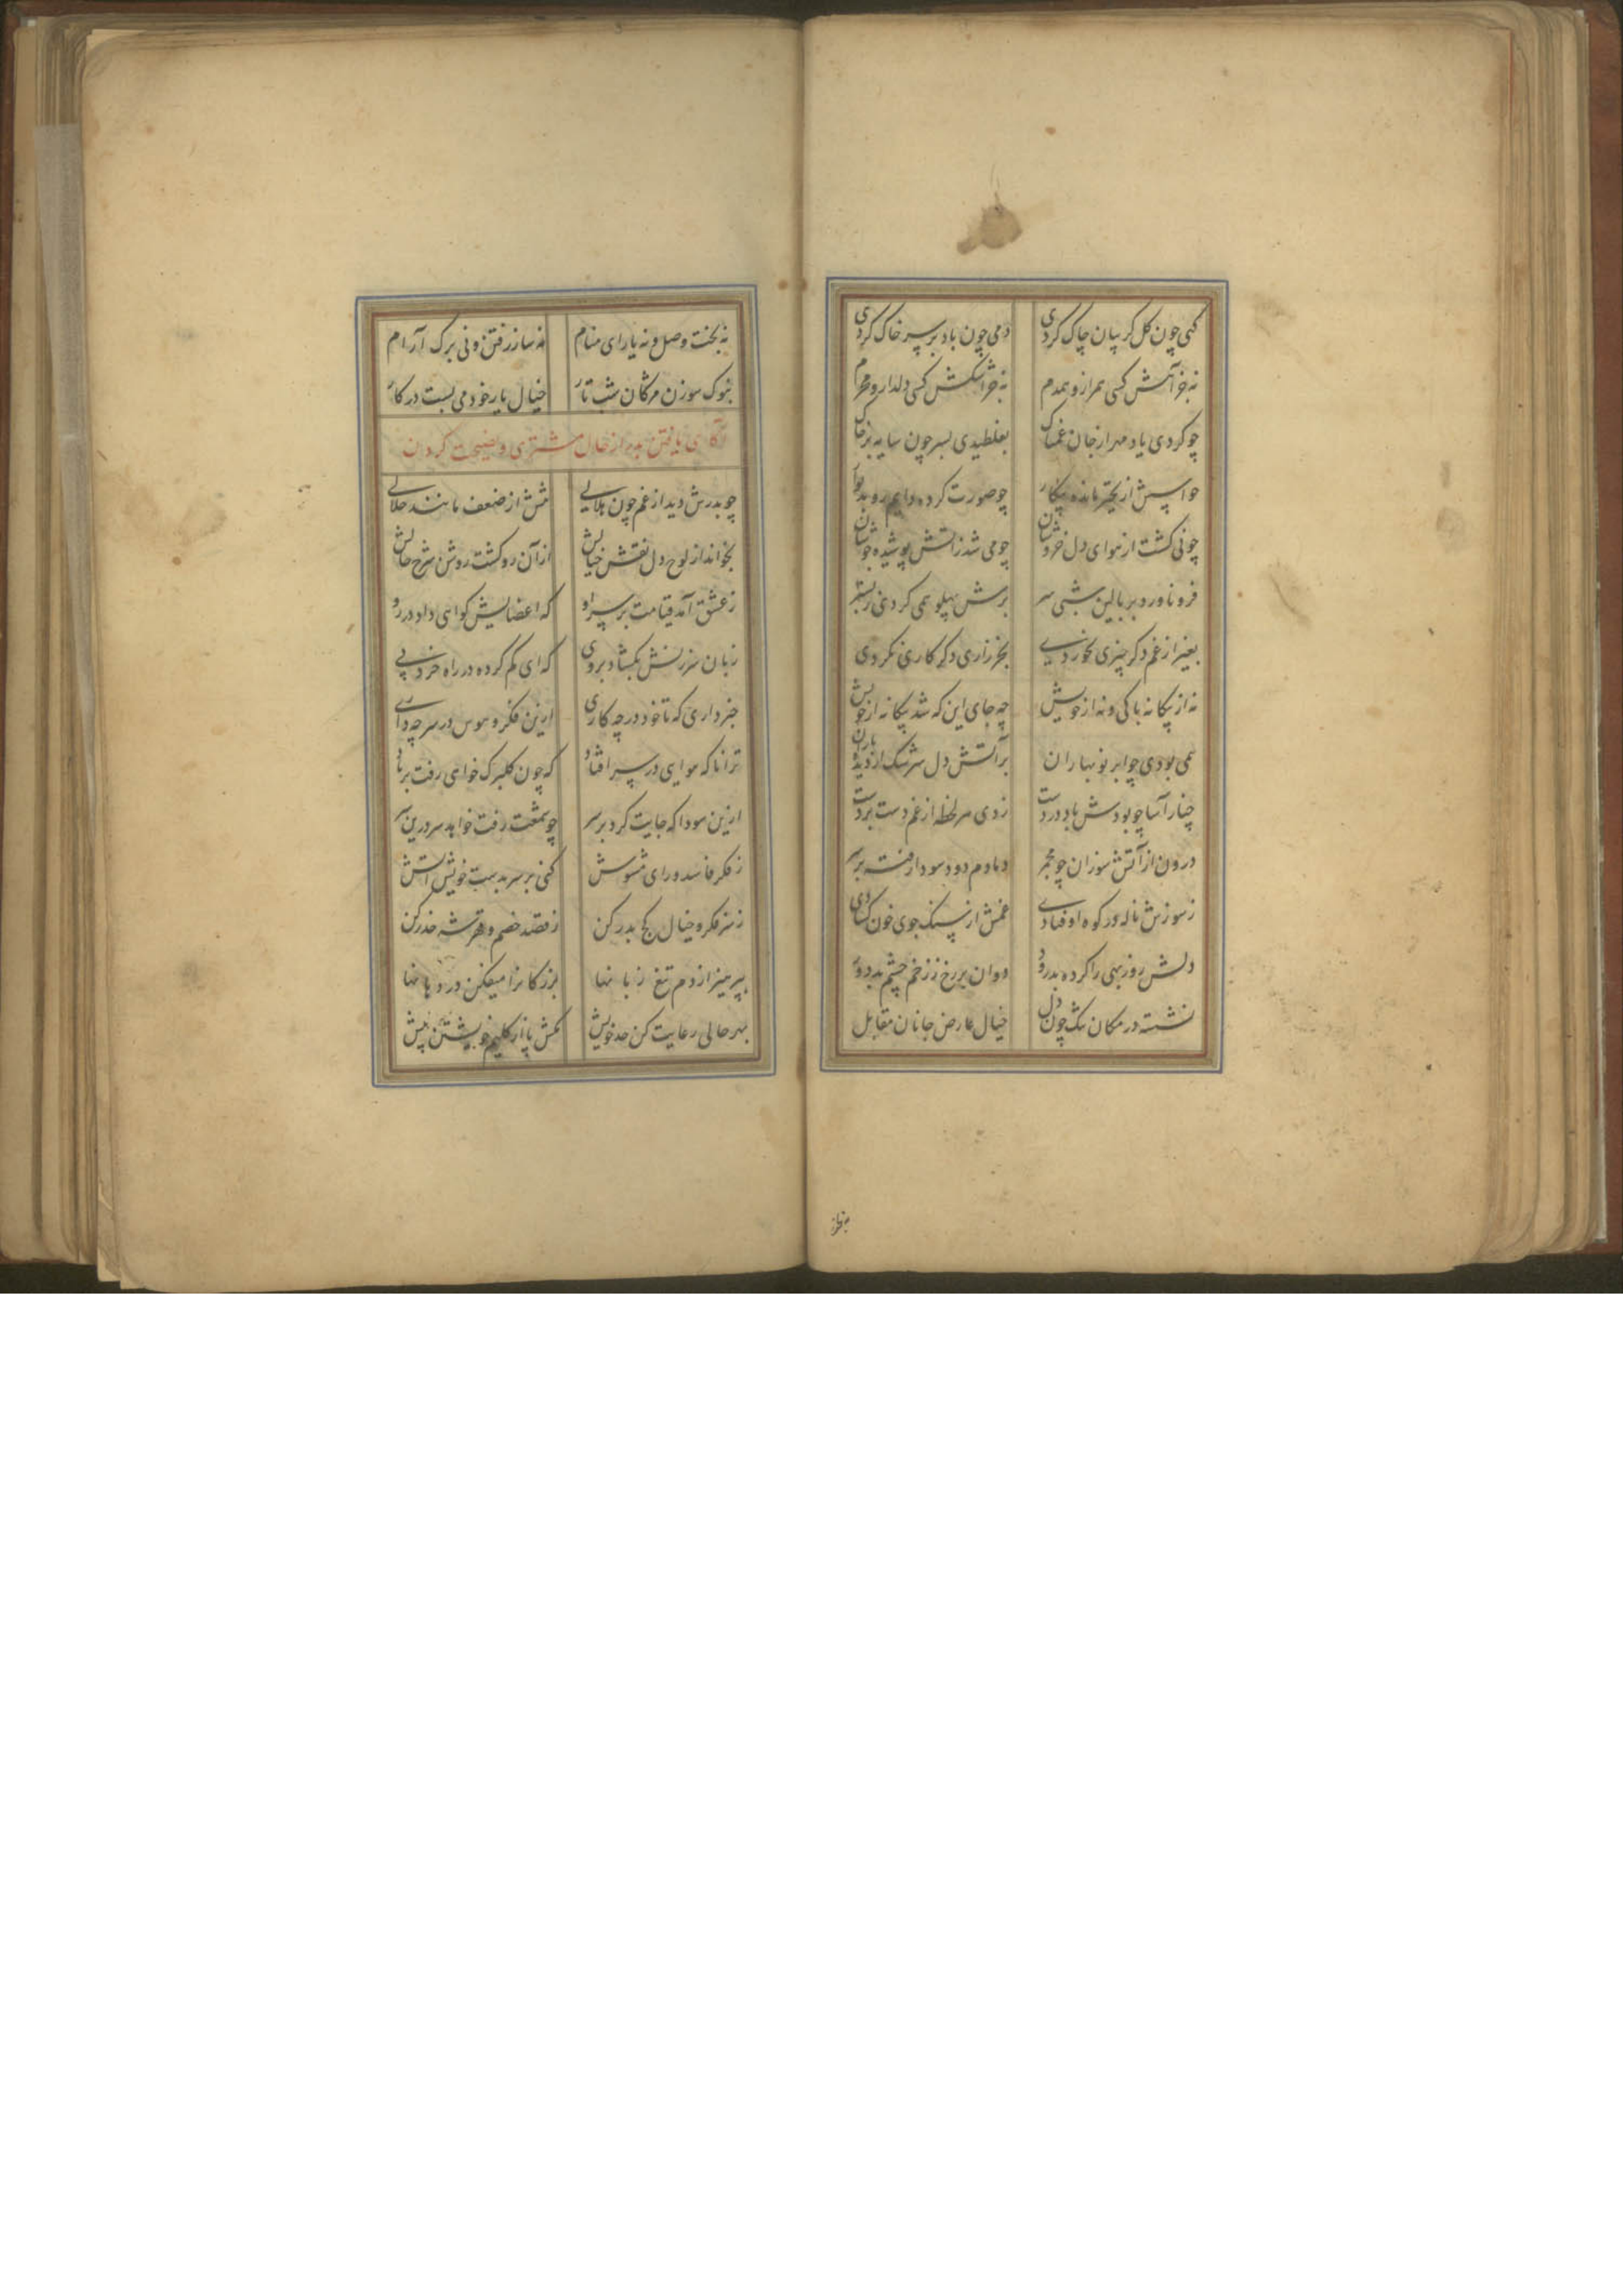 گهی چون گل گریبان چاک کردی دمی چون باد بر سر خاک کردی
نه جز آهش کسی همراز و همدم نه جز اشکش کسی دلدار و محرم
چو کردی یاد مهر از جان غمناک بغلطیدی بسر چون سایه بر خاک
حواسش از تحیر مانده بیکار چو صورت کرده دایم رو بدیوار
چو نی گشت از هوای دل خروشان چو می شد ز آتش پوشیده جوشان
فرو ناورد بر بالین شبی سر برش پهلو همی کردی ز بستر
بغیر از غم دگر چیزی نخوردی بجز زاری دگر کاری نکردی
نه از بیگانه باکی و نه از خویش چه جای این که شد بیگانه از خویش
همی بودی چو ابر نوبهاران بر آتش دل سرشک از دیده باران
چنار آسا چو بودش باد در دست زدی هر لحظه از غم دست بر دست
درون از آتش سوزان چو مجمر دمادم دود سودا رفته بر سر
ز سوزش ناله در کوه اوفتادی غمش از سنگ جوی خون گشادی
دلش روز بهی را کرده بدرود دوان بر رخ ز زخم چشم بد دور
نشسته در مکان تنگ چون دل خیال عارض جانان مقابل
بجز
نه بخت وصل و نه یارای منام نه ساز رفتن و نی برگ آرام
بنوک سوزن مژگان شب تار خیال یار خود می بست در کار
آگاهی یافتن بدر از حال مشتری و نصیحت کردن
چو بدرش دید از غم چون هلالی تنش از ضعف مانند خلالی
بخواند از لوح دل نقش خیالش از آن رو گشت روشن شرح حالش
ز عشق آمد قیامت بر سر او که اعضایش گواهی داد در رو
زبان سرزنش بگشاد بر وی که ای گم کرده در راه خرد پی
خبر داری که تا خود در چه کاری ازین فکر و هوس در سر چه داری
ترا تا که هوایی در سر افتاد که چون گلبرگ خواهی رفت بر باد
ازین سودا که جایت کرد بر سر چو شمعت رفت خواهد سر درین سر
ز فکر فاسد و رای مشوش کنی بر سر بدست خویش آتش
ز سر فکر و خیال کج بدر کن ز قصد خصم و حذر کن
بپرهیز از دم تیغ زبانها بزرگانرا میفکن در دهانها
بهر حالی رعایت کن حد خویش مکش پا از گلیم خویشتن بیش